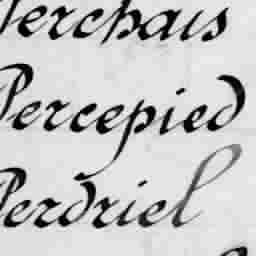 Perchais
Percepied
Perdriel